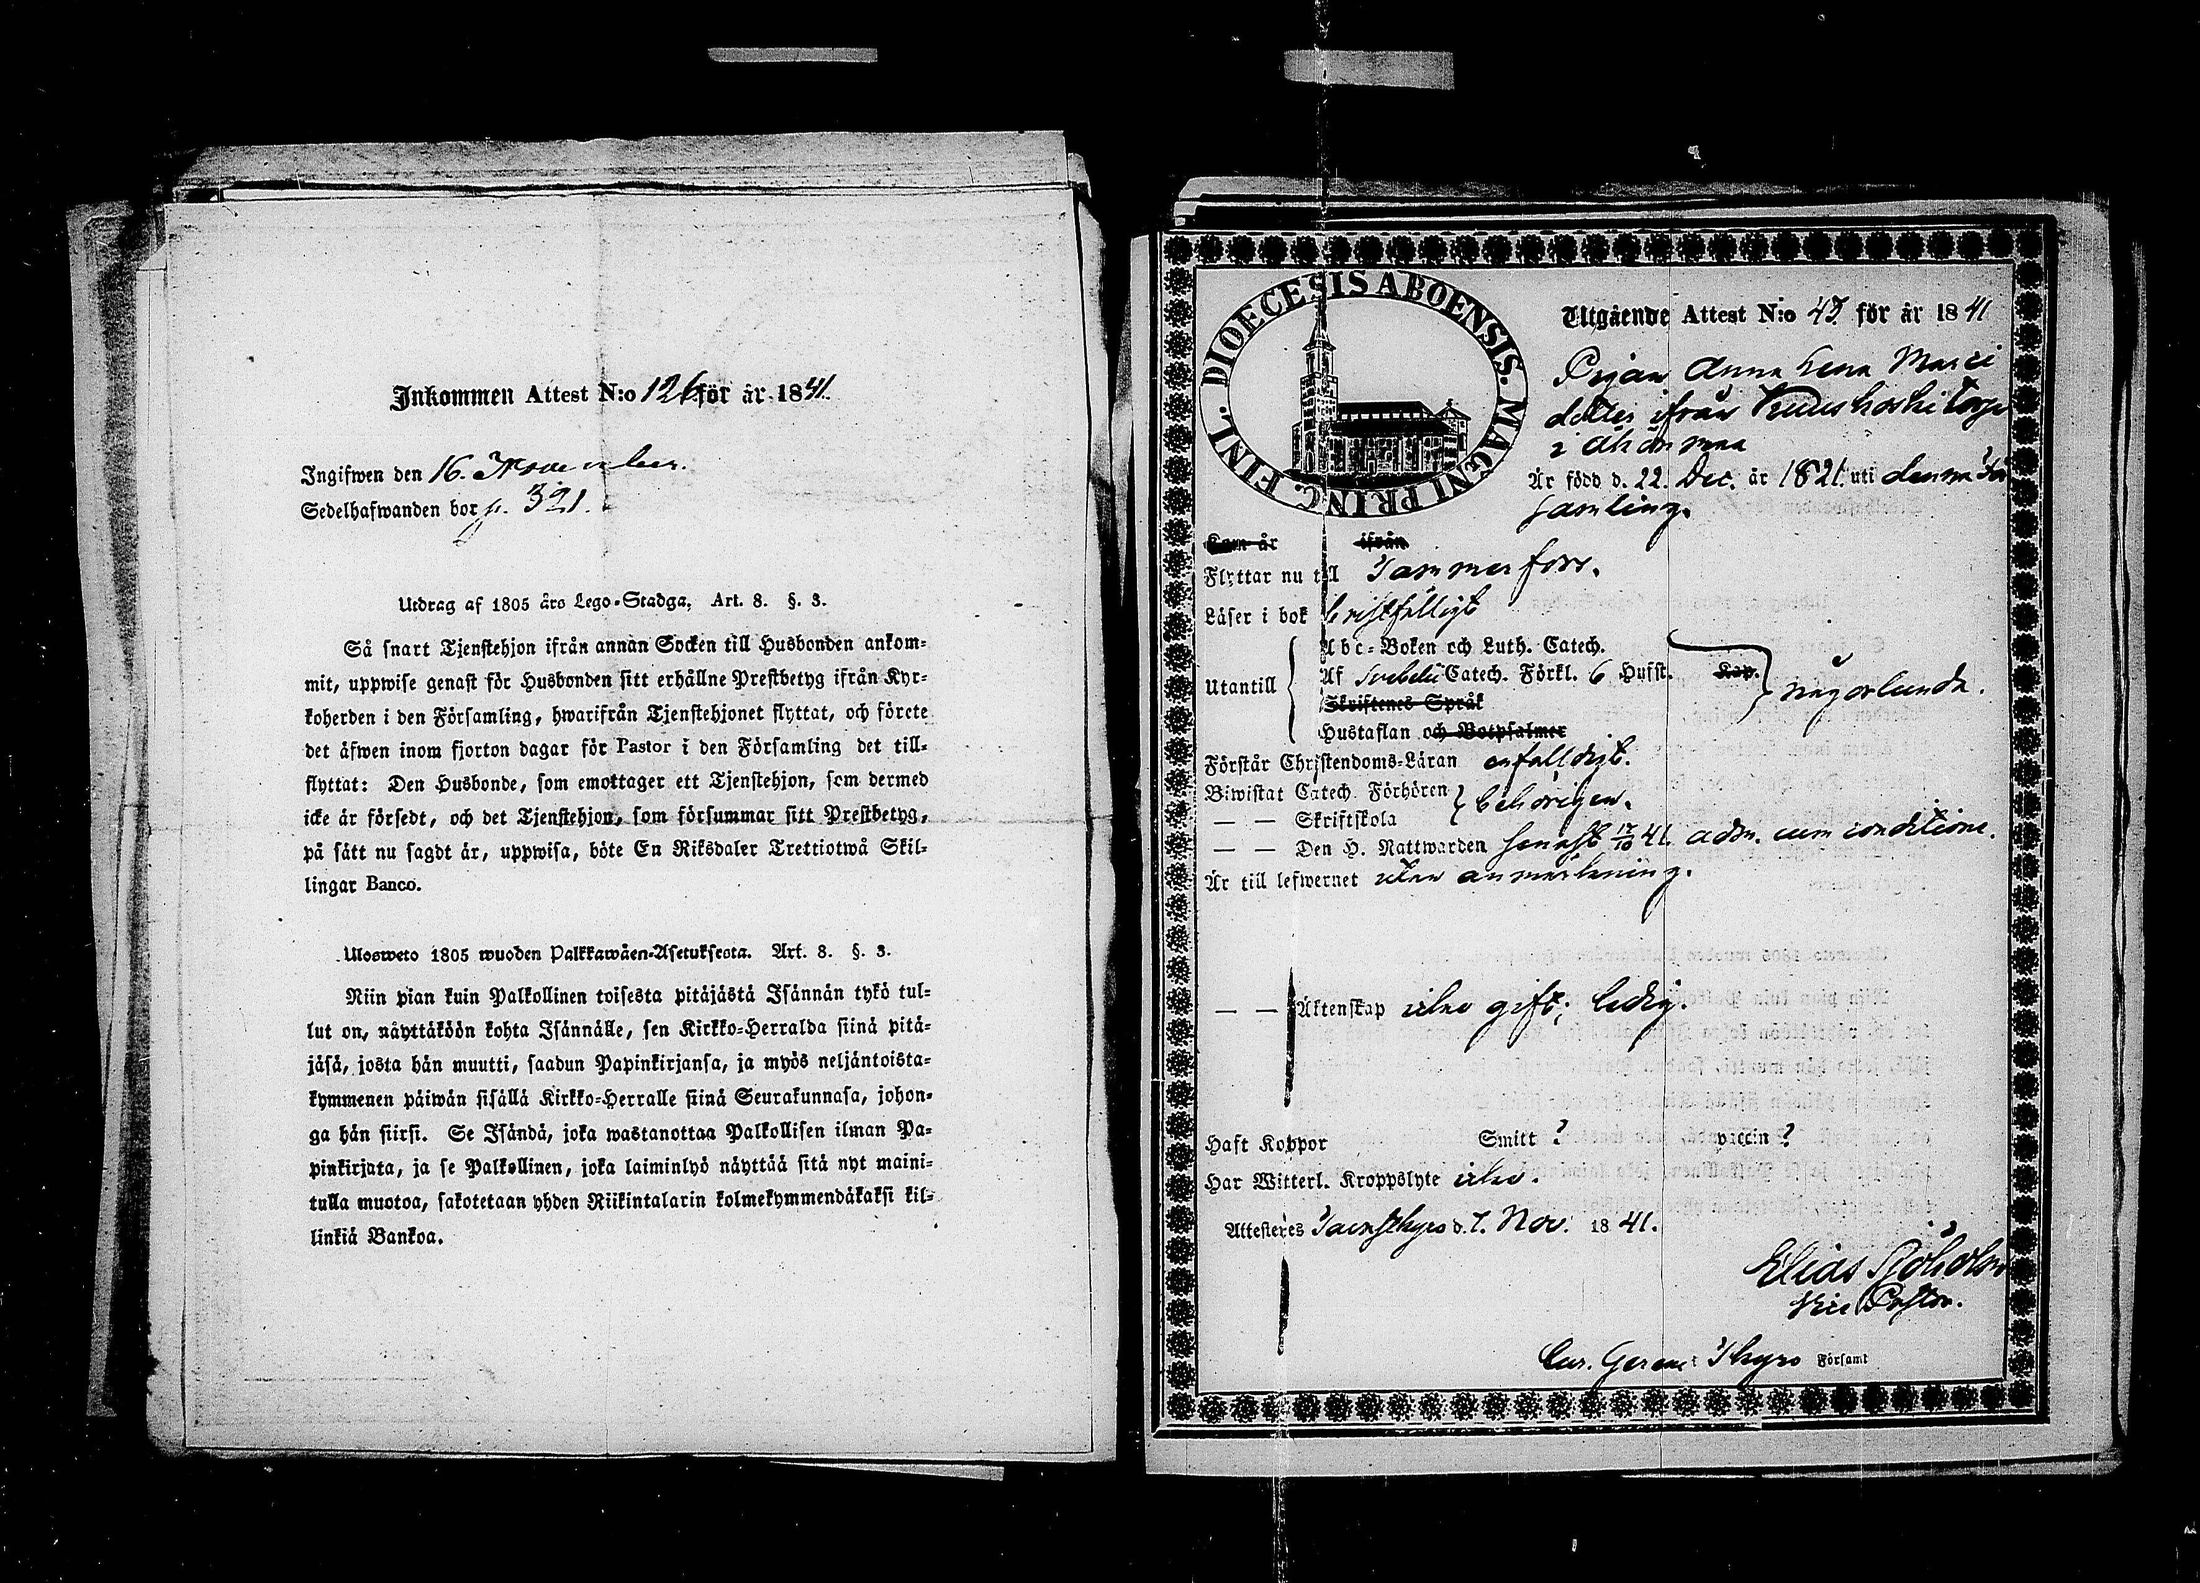 Inkommen Attest N:o 126 för år 1841.
Ingifwen den 16. November.
Sedelhafwanden bor p. 321.
Utdrag af 1805 års Lego-Stadga, Art. 8. §. 3.
Så snart Tjenstehjon ifrån annan Socken till Husbonden ankom-
mit, uppwise genast för Husbonden sitt erhållne Prestbetyg ifrån Kyr-
koherden i den Församling, hwarifrån Tjenstehjonet flyttat, och förete
det äfwen inom fjorton dagar för Pastor i den Församling det till-
flyttat: Den Husbonde, som emottager ett Tjenstehjon, som dermed
icke är försedt, och det Tjenstehjon, som försummar sitt Prestbetyg,
på sätt nu sagdt är, uppwisa, böte En Riksdaler Trettiotwå Skil-
lingar Banco.
Ulosweto 1805 wuoden Palkkawäen-Asetuksesta. Art. 8. §. 3.
Niin pian kuin Palkollinen toisesta pitäjästä Isännän tykö tul-
lut on, näyttäköön kohta Isännälle, sen Kirkko-Herralda siinä pitä-
jäsä, josta hän muutti, saadun Papinkirjansa, ja myös neljäntoista-
kymmenen päiwän sisällä Kirkko-Herralle siinä Seurakunnasa, johon-
ga hän siirsi. Se Isändä, joka wastanottaa Palkollisen ilman Pa-
pinkirjata, ja se Palkollinen, joka laiminlyö näyttää sitä nyt maini-
tulla muotoa, sakotetaan yhden Riikintalarin kolmekymmendäkaksi kil-
linkiä Bankoa.
DIOECESIS ABOENSIS. MAGNI PRINC. FINL.
Utgående Attest N:o 43 för år 1841
Pigan Anna Lena Marci
dotter ifrån Kuuskoski torp
i
Är född d. 22. Dec. år 1821. uti denna För
samling.
Kom år ifrån
Flyttar nu till Tammerfors.
Läser i bok bristfälligt
Utantill
Abc-Boken och Luth. Catech.
Af Svebelii Catech. Förkl. 6 Hufst. Kap.
Skriftenes Språk
Hustaflan och Botpsalmer
någorlunda.
Förstår Christendoms-Läran enfaldigt.
Biwistat Catech. Förhören
— — Skriftskola
behörigen.
— — Den H. Nattwarden senast 17/10 41. adm. cum conditione.
Är till lefwernet utan anmärkning.
— — Äktenskap icke gift; ledig.
Haft Koppor Smitt ? vaccin ?
Har Witterl. Kroppslyte icke.
Attesteres Tavastkyro d. 7. Nov. 1841.
Elias
Vice Pastor.
Cur. Gerens i Ikyro Församl